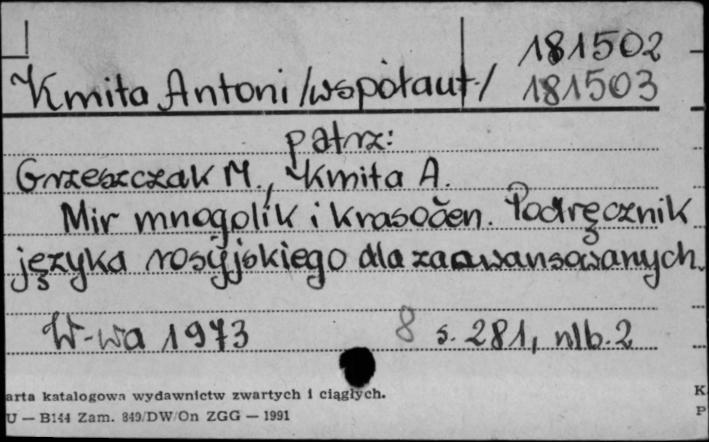 181502
Kmita Antoni /współaut./ 181503
patrz:
Grzeszczak M., Kmita A.
Mir mnogolik i krasočen. Podręcznik
języka rosyjskiego dla zaawansowanych.
W-wa 1973 8 s. 281, nlb. 2
arta katalogowa wydawnictw zwartych i ciągłych.
U — B144 Zam. 849/DW/On ZGG — 1991
K
P